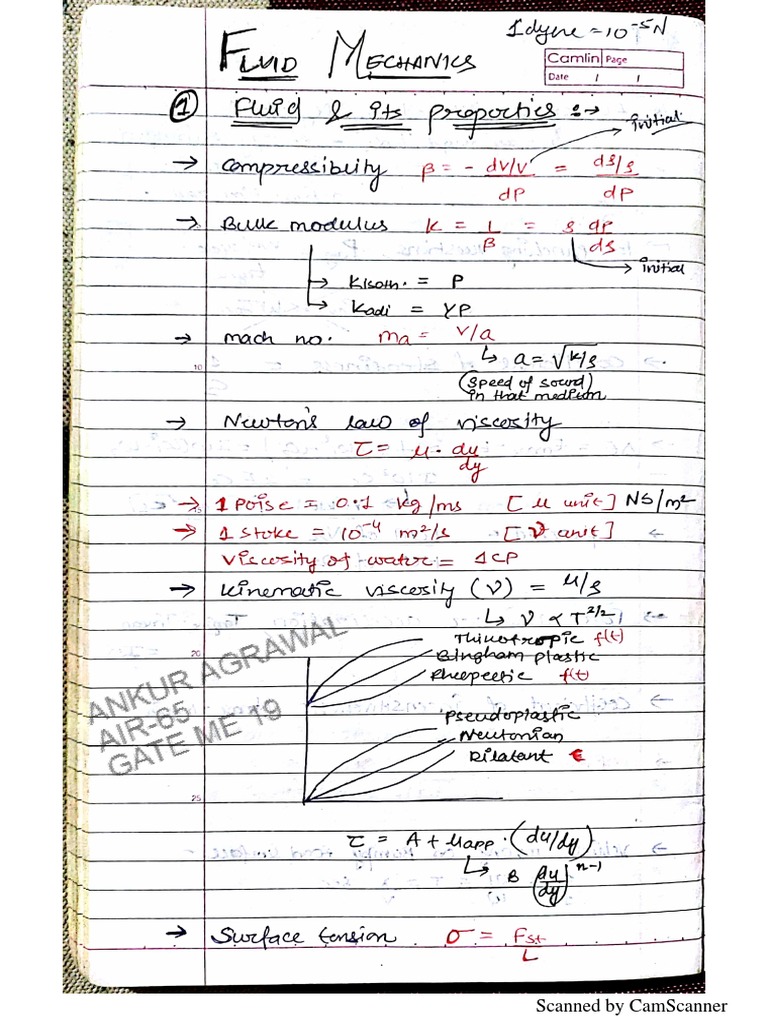 1 dyne = 10^-5 N
FLUID MECHANICS
Camlin Page
Date / /
① Fluid & its properties :→
initial
→ compressiblity β = - dV/V / dP = dρ/ρ / dP
→ Bulk modulus K = 1/β = ρ dP/dρ
initial
→ Kisoth. = P
→ Kadi = γP
→ mach no. Ma = V/a
10
↳ a = √K/ρ
(speed of sound)
in that medium
→ Newton's law of viscosity
τ = μ. du/dy
→ 1 Poise = 0.1 kg/ms [μ unit] NS/m²
→ 1 stoke = 10^-4 m²/s [ν unit]
viscosity of water = 1 CP
→ kinematic viscosity (ν) = μ/ρ
↳ ν ∝ T^2/2
20
Thixotropic f(t)
Bingham plastic
Rheopectic f(t)
ANKUR AGRAWAL
AIR-65
GATE ME 19
Pseudoplastic
Newtonian
Dilatant
25
τ = A + μapp. (du/dy)
↳ B (du/dy)^n-1
→ Surface tension σ = Fst/L
Scanned by CamScanner